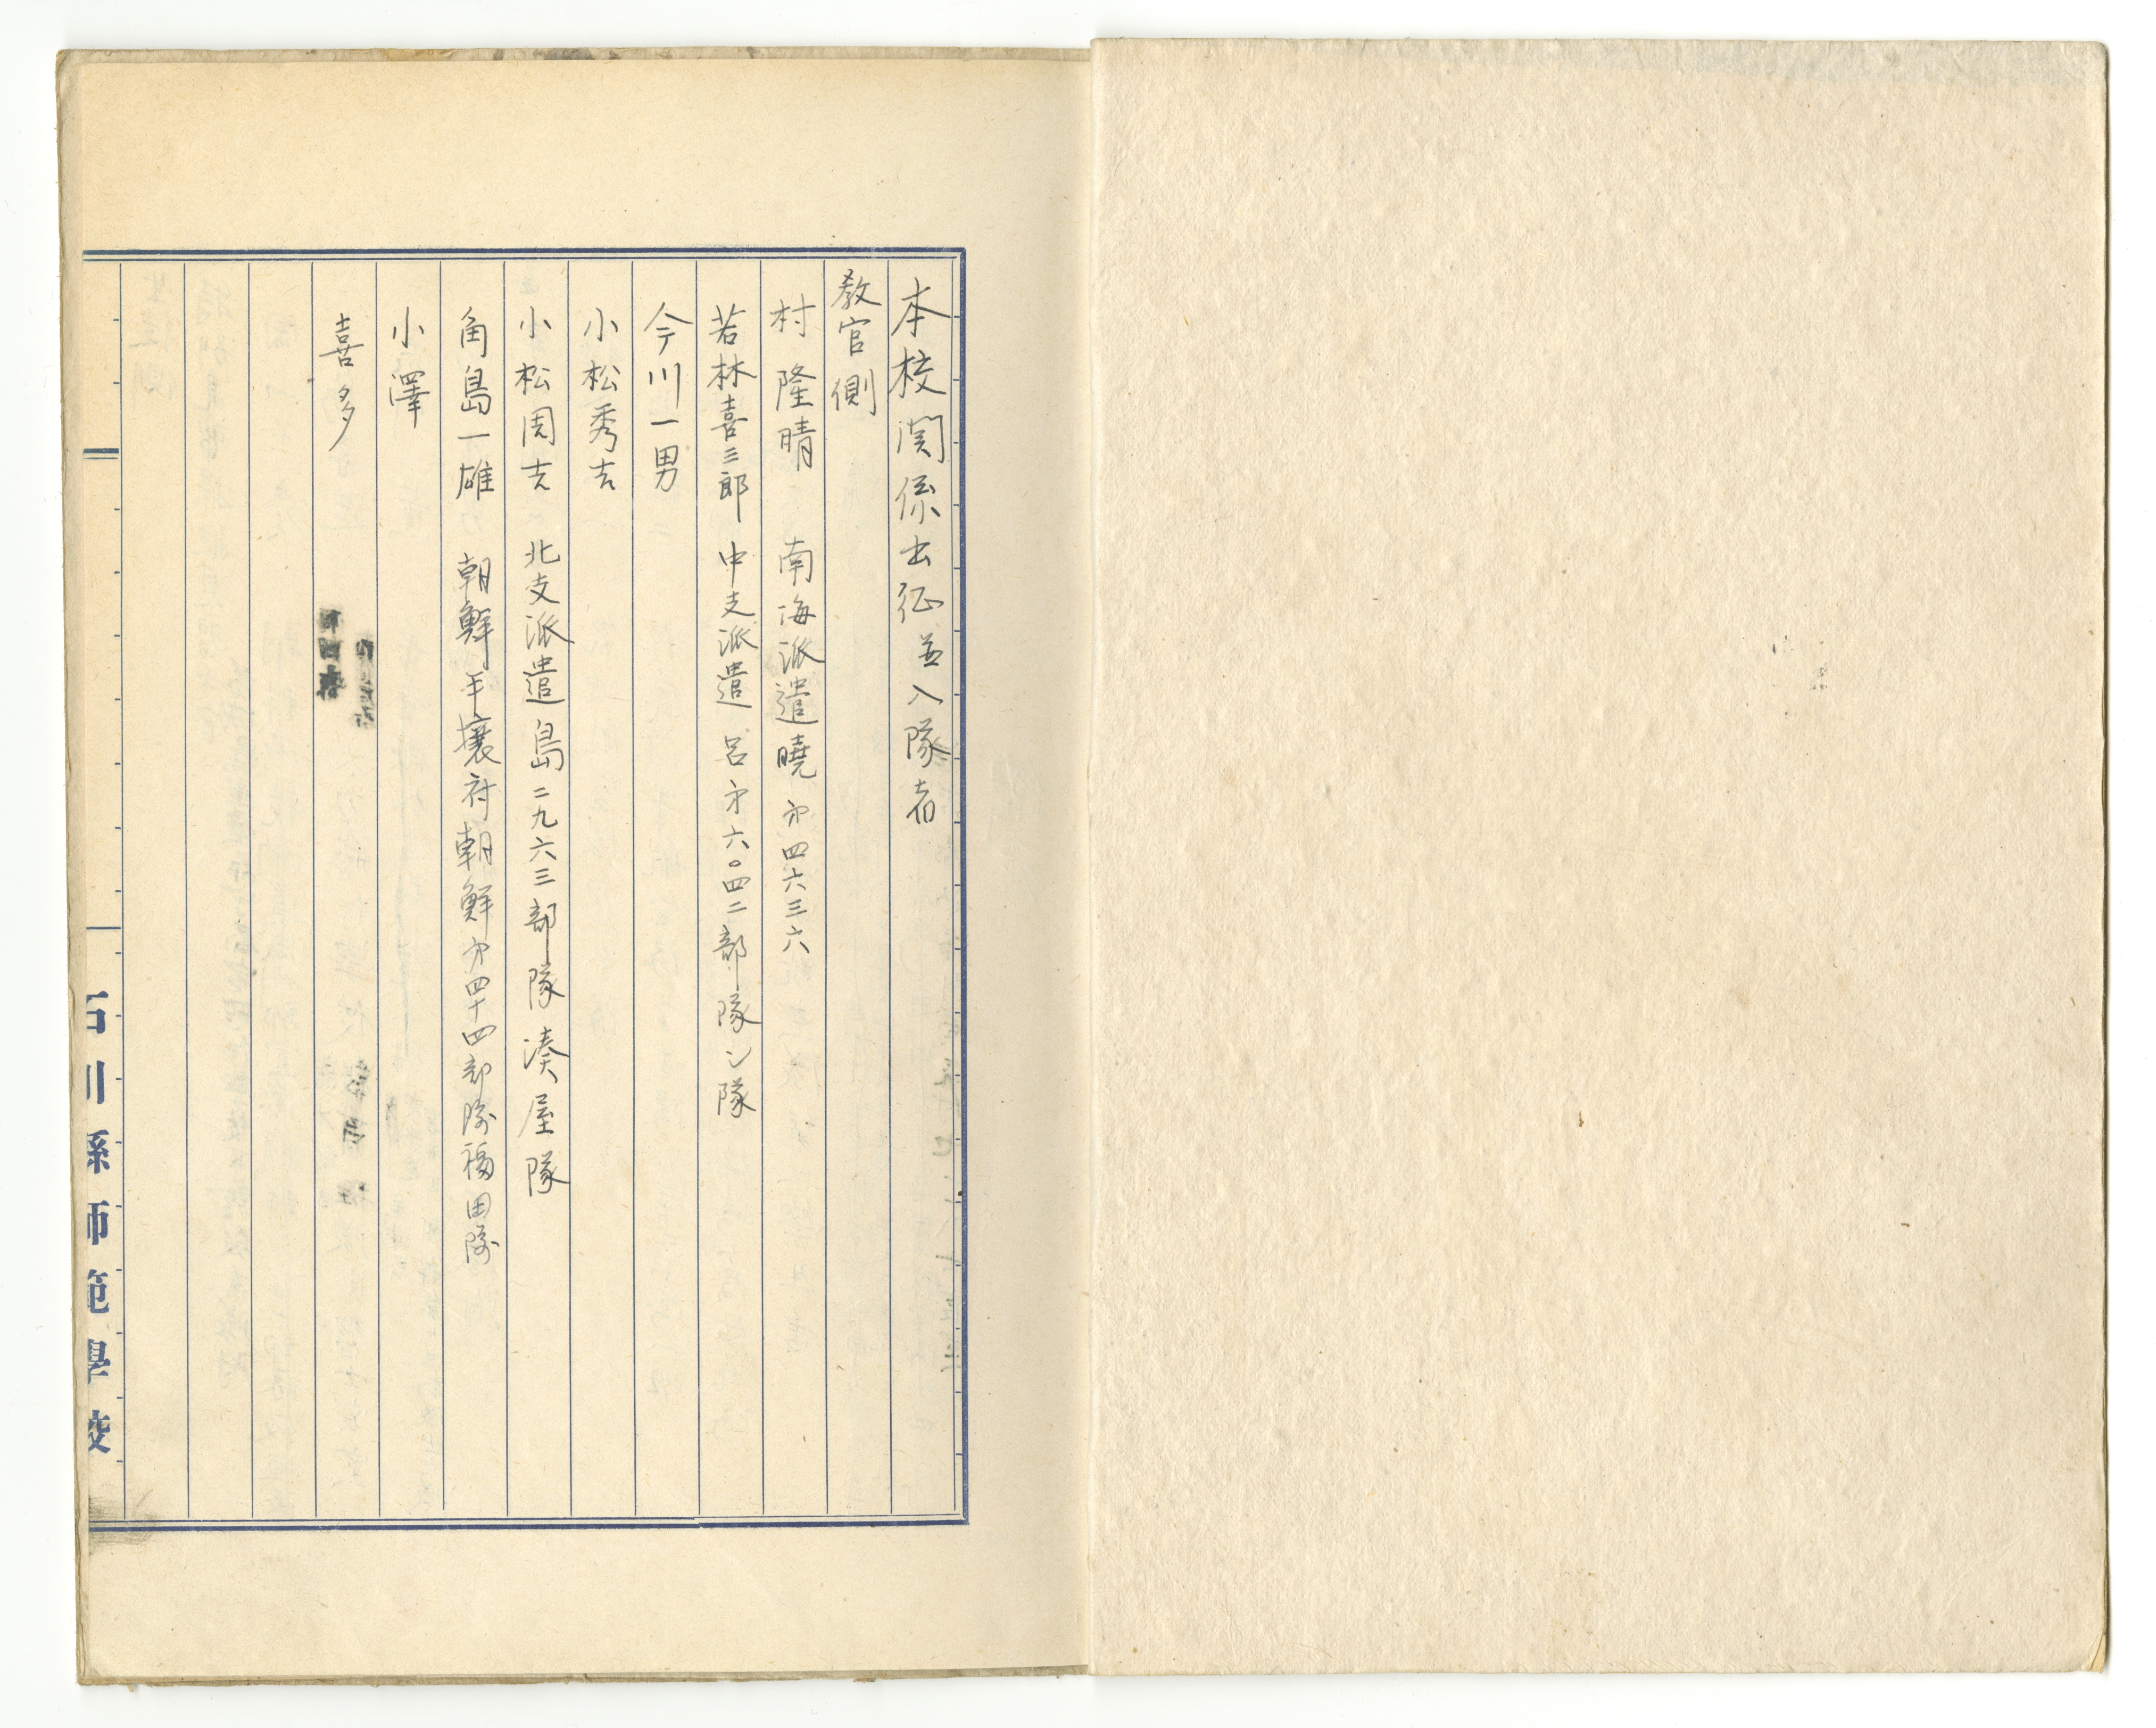 本校関係出征並入隊者
教官側
村隆晴　南海派遣暁第四六三六
若林喜三郎　中支派遣　呂第六〇四二部隊レ隊
今川一男
小松秀吉
小松周吉　北支派遣島二九六三部隊湊屋隊
角島一雄　朝鮮平壌府朝鮮第四十四部隊福田隊
小澤
喜多
石川縣師範學校